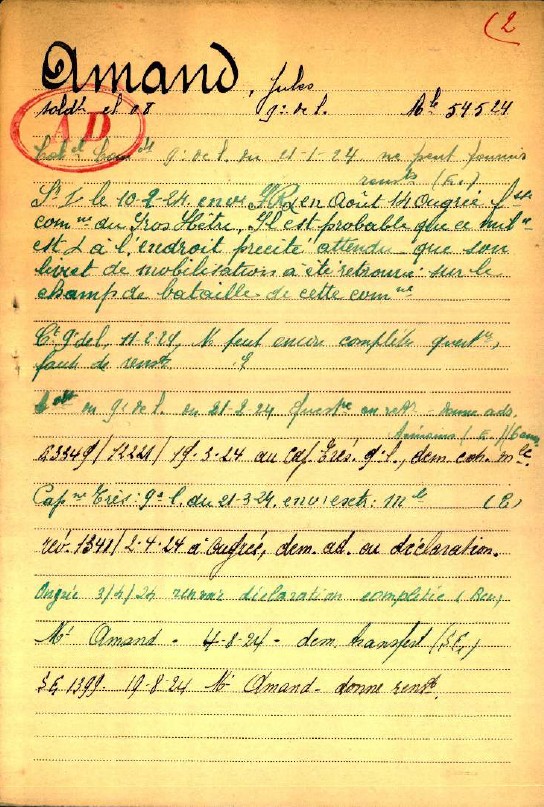 (2
Amand, Jules
soldt cl 08 9e de l. Mle 54524
AD
9e de l. du 21-1-24 ne peut fournir
rensts (E.)
St L le 10-2-24 envi en Août 14 Ougrée
comne du Gros Hêtre, Il est probable que ce milre
est à l'endroit précité attendu que son
livret de mobilisation a été retrouvé sur le
champ de bataille de cette comne
Ct 9 de l. 11-2-24, Ne peut encore compléter questre,
faute de rensts
en 9e de l. du 21-2-24 Questre en retr - Donne ads.
(E.)
E3349/12221/19-3-24 au Cap Trés. 9e l., dem. ext. mle.
Capne Très: 9e l. du 21-3-24. envoi extr: Mle (E)
rév. 1341/2-4-24 à Ougrée, dem. ad. ou déclaration.
Ougrée 3/4/24 renvoi déclaration complétée
Mr Amand - 4-8-24 - dem. transfert (SE,)
SE 1399. 19-8-24 Mr Amand - donne rensts.